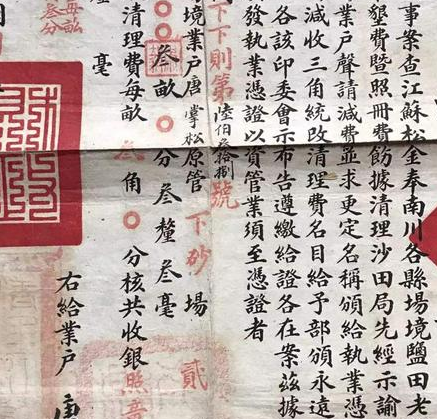 事案查江蘇松金奉南川各縣場境鹽田老
墾費暨照冊費飭據清理沙田局先經示諭
業戶聲請減費並求更定名稱頒給執業憑
減收三角統改清理費名目給予部頒永遠
各該印委會示布告遵繳給證各在案茲據
發執業憑證以資管業須至憑證者
下下則第陸伯叁拾捌號
境業戶唐掌松原管下砂場
叁畝〇分叁釐叁毫
清理費每畝叁角〇分核共收銀
毫
每畝
叁分
右給業戶唐
貳
照